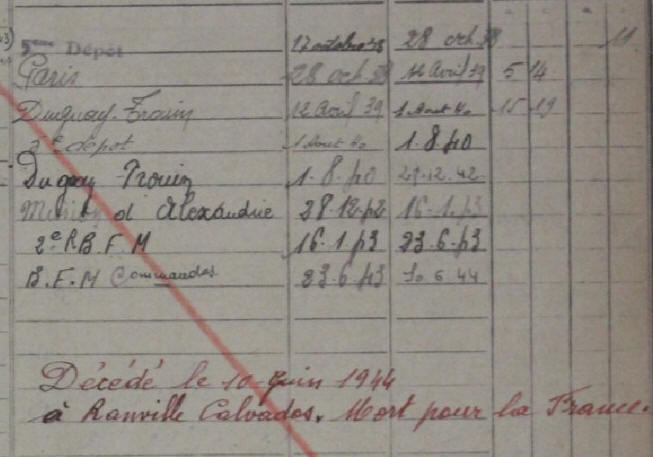 5ème Dépôt 17 octobre 38 28 oct. 38 11
Paris 28 oct. 38 12 Avril 39 5 14
Duguay-Trouin 12 Avril 39 1 Aout 40 15 19
2e dépot 1 Aout 40 1.8.40
Duguay Trouin 1.8.40 28.12.42
d'Alexandrie 28.12.42 16.1.43
2e R B.F.M 16.1.43 23.6.43
B.F.M Commandos 23.6.43 10.6.44
Décédé le 10 Juin 1944
à Ranville Calvados. Mort pour la France.